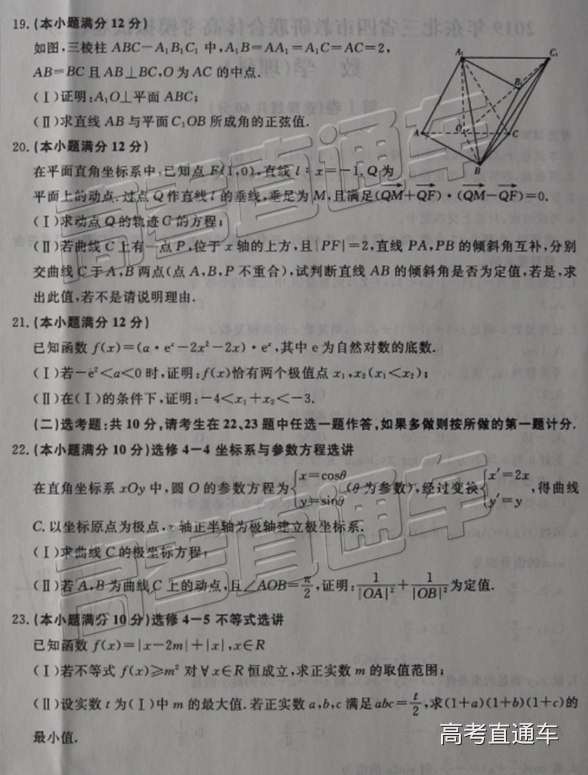 19.(本小题满分12分)
如图,三棱柱ABC—A₁B₁C₁中,A₁B=AA₁=A₁C=AC=2,
AB=BC且AB⊥BC,O为AC的中点.
(Ⅰ)证明:A₁O⊥平面ABC;
(Ⅱ)求直线AB与平面C₁OB所成角的正弦值.
A₁
C₁
B₁
A
O
C
B
20.(本小题满分12分)
在平面直角坐标系中,已知点F(1,0),直线l:x=-1,Q为
平面上的动点,过点Q作直线l的垂线,垂足为M,且满足(QM+QF)·(QM-QF)=0.
(Ⅰ)求动点Q的轨迹C的方程;
(Ⅱ)若曲线C上有一点P,位于x轴的上方,且|PF|=2,直线PA,PB的倾斜角互补,分别
交曲线C于A,B两点(点A,B,P不重合),试判断直线AB的倾斜角是否为定值.若是,求
出此值,若不是请说明理由.
21.(本小题满分12分)
已知函数f(x)=(a·eˣ-2x²-2x)·eˣ,其中e为自然对数的底数.
(Ⅰ)若-e²<a<0时,证明:f(x)恰有两个极值点x₁,x₂(x₁<x₂);
(Ⅱ)在(Ⅰ)的条件下,证明:-4<x₁+x₂<-3.
(二)选考题:共10分,请考生在22、23题中任选一题作答,如果多做则按所做的第一题计分.
22.(本小题满分10分)选修4—4坐标系与参数方程选讲
在直角坐标系xOy中,圆O的参数方程为{x=cosθ y=sinθ(θ为参数),经过变换{x′=2x y′=y,得曲线
C.以坐标原点为极点,x轴正半轴为极轴建立极坐标系.
(Ⅰ)求曲线C的极坐标方程;
(Ⅱ)若A,B为曲线C上的动点,且∠AOB=π/2,证明:1/|OA|²+1/|OB|²为定值.
23.(本小题满分10分)选修4—5不等式选讲
已知函数f(x)=|x-2m|+|x|,x∈R
(Ⅰ)若不等式f(x)≥m²对∀x∈R恒成立,求正实数m的取值范围;
(Ⅱ)设实数t为(Ⅰ)中m的最大值.若正实数a,b,c满足abc=t/2,求(1+a)(1+b)(1+c)的
最小值.
高考直通车
高考直通车
高考直通车